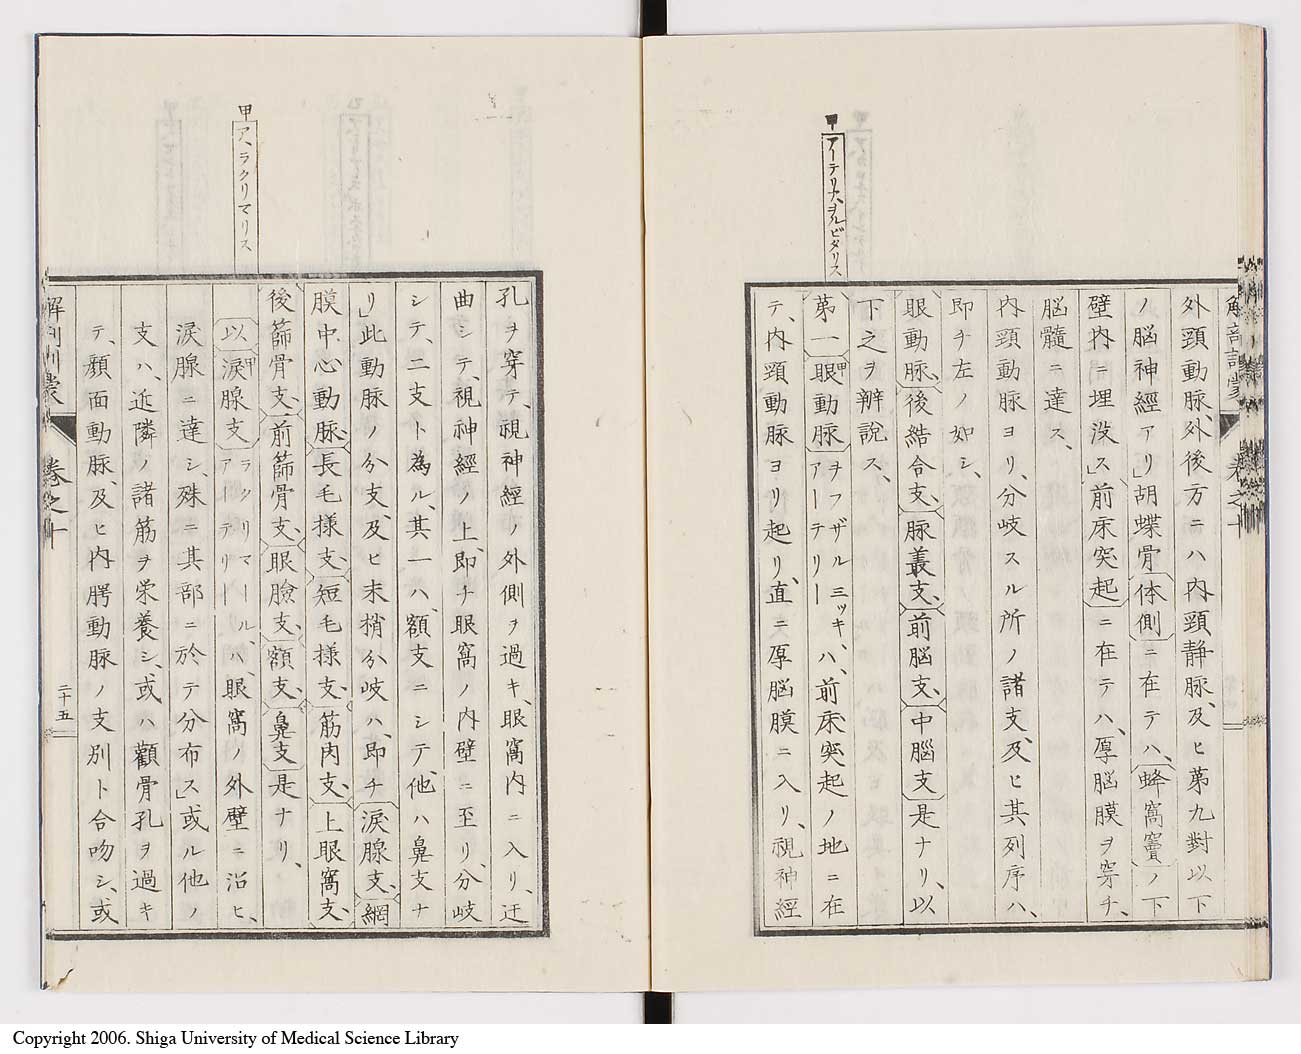 甲 アーテリナ、ヲルビタリス
解剖訓蒙 卷之十
外頸動脈、外後方ニハ內頸静脈、及ヒ第九對以下
ノ脳神經アリ」胡蝶骨体側ニ在テハ、蜂窩竇ノ下
壁內ニ埋没ス」前床突起ニ在テハ、厚脳膜ヲ穿チ、
脳髓ニ達ス、
內頸動脈ヨリ、分岐スル所ノ諸支、及ヒ其列序ハ、
即チ左ノ如シ、
眼動脈、後結合支、脉叢支、前脳支、中脳支是ナリ、以
下之ヲ辨說ス、
第一眼甲動脈アーテリーヲフザル三ッキ、ハ、前床突起ノ地ニ在
テ、內頸動脈ヨリ起リ、直ニ厚脳膜ニ入リ、視神經
甲 ア、ラクリマリス
孔ヲ穿テ、視神經ノ外側ヲ過キ、眼窩內ニ入リ、迂
曲シテ、視神經ノ上、即チ眼窩ノ內壁ニ至リ、分岐
シテ、二支ト為ル、其一ハ、額支ニシテ、他ハ鼻支ナ
リ」此動脈ノ分支、及ヒ末梢分岐ハ、即チ淚腺支、網
膜中心動脈、長毛樣支、短毛樣支、筋肉支、上眼窩支、
後篩骨支、前篩骨支、眼瞼支、額支、鼻支是ナリ、
以淚甲腺支アーテリーラクリマール、ハ、眼窩ノ外壁ニ沿ヒ、
淚腺ニ達シ、殊ニ其部ニ於テ分布ス」或ル他ノ
支ハ、近隣ノ諸筋ヲ栄養シ、或ハ顴骨孔ヲ過キ
テ、顏面動脈、及ヒ內腭動脈ノ支別ト合吻シ、或
解剖訓蒙 卷之十 二十五
Copyright 2006. Shiga University of Medical Science Library